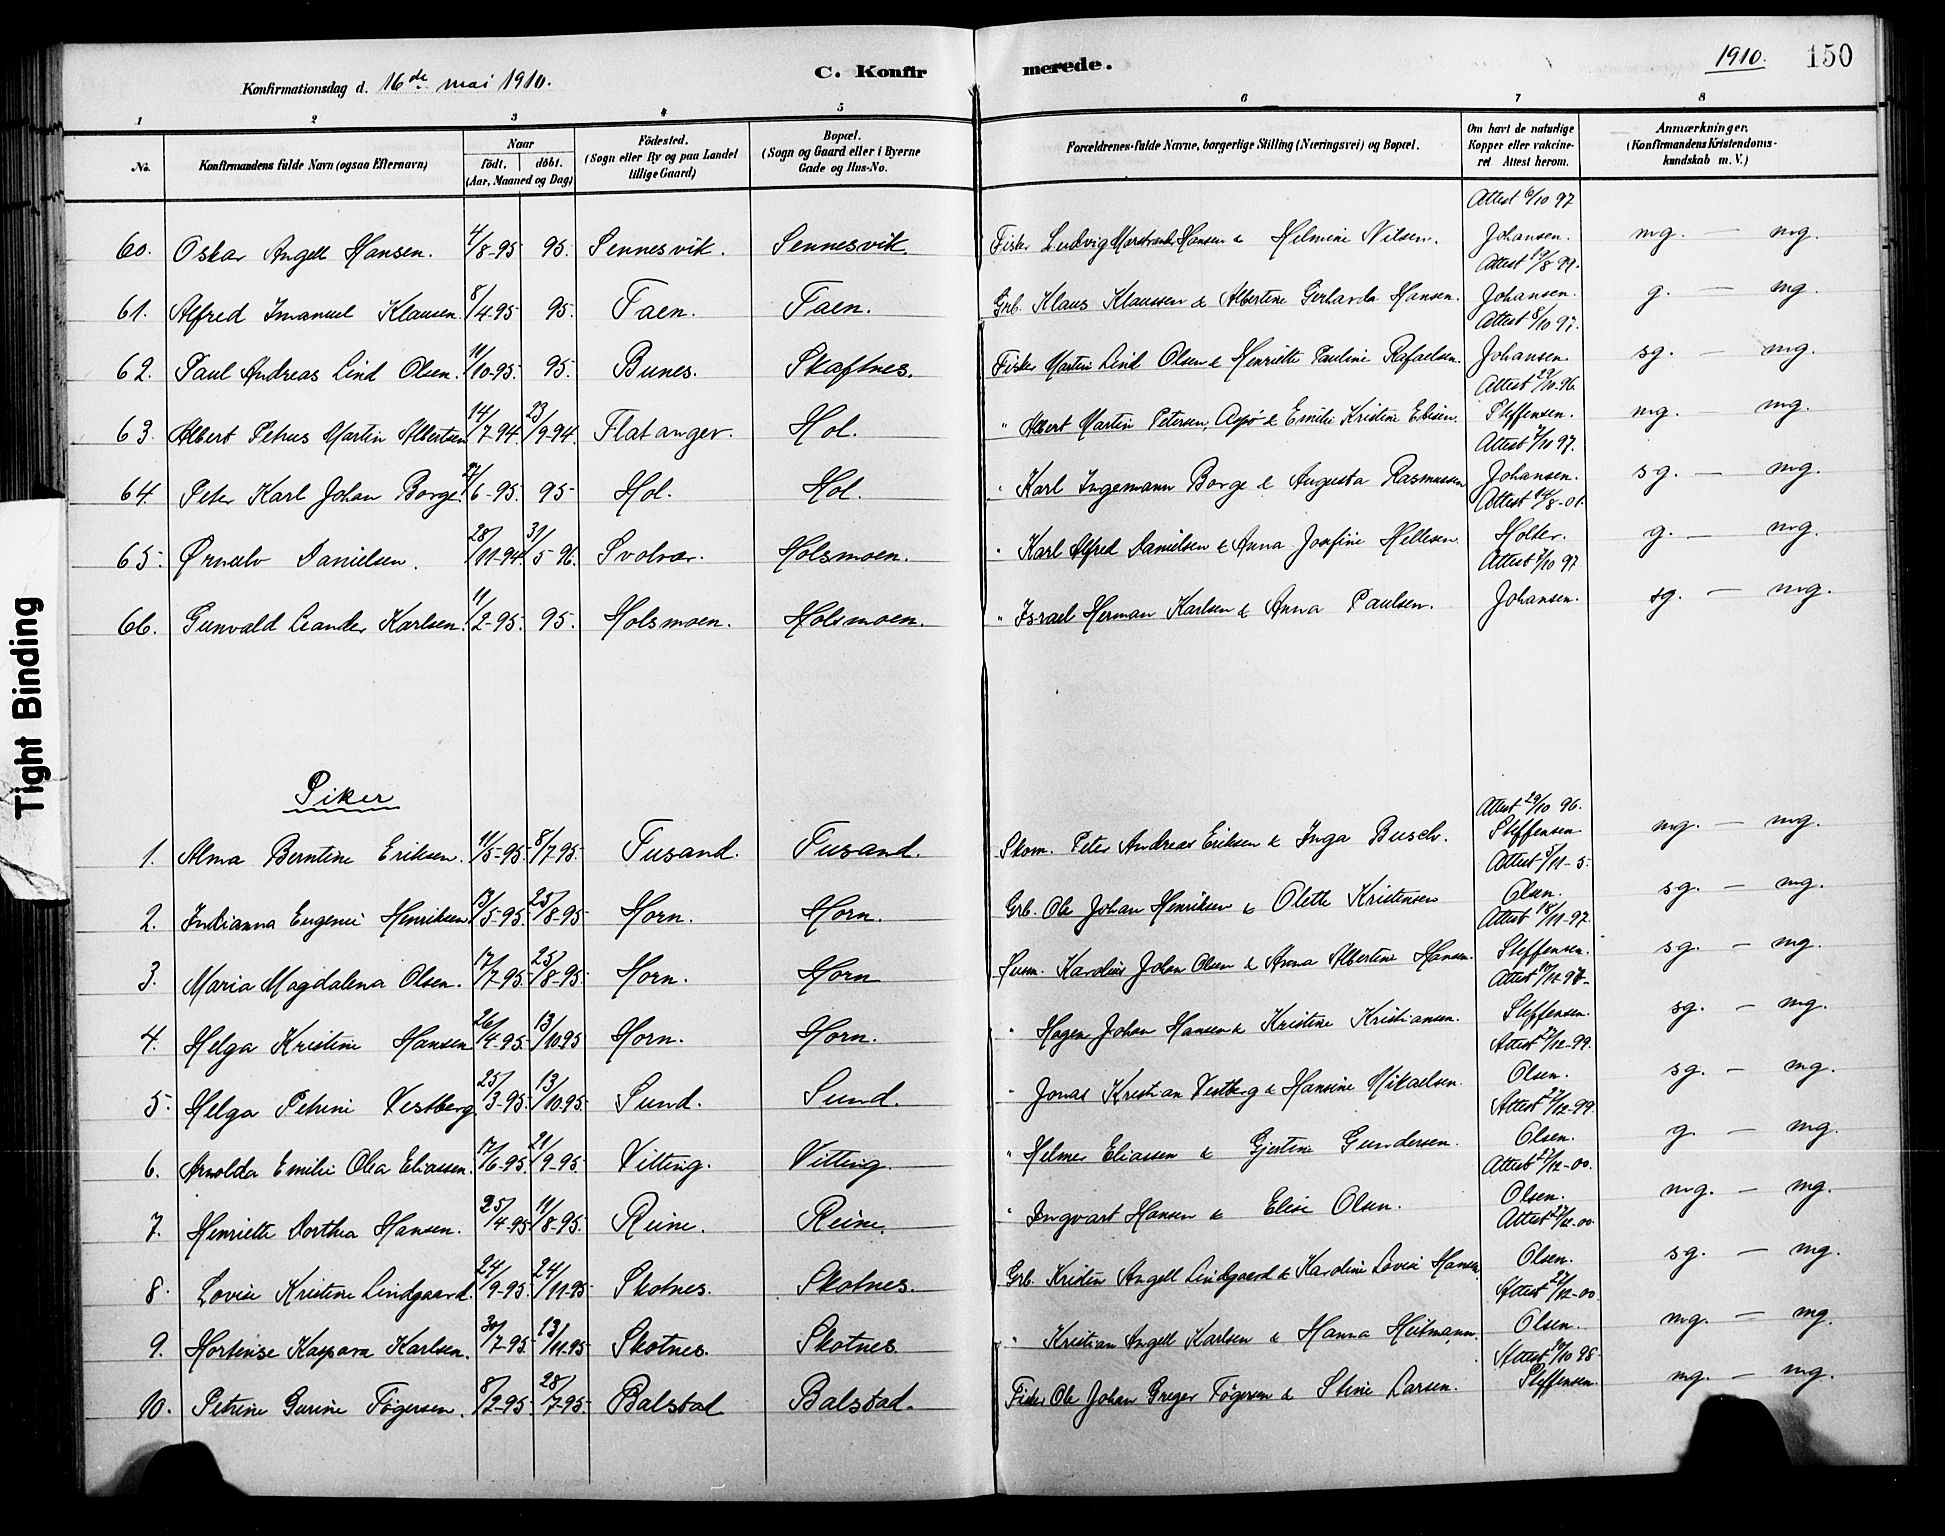 Konfirmationsdag d. 16de mai 1910.
C. Konfirmerede.
1910. 150
1 2 3 4 5 6 7 8
No. Konfirmandens fulde Navn (ogsaa Efternavn) Naar födt. döbt. (Aar, Maaned og Dag) Födested. (Sogn eller By og paa Landet tillige Gaard) Bopæl. (Sogn og Gaard eller i Byerne Gade og Hus-No. Forældrenes fulde Navne, borgerlige Stilling (Næringsvei) og Bopæl. Om havt de naturlige Kopper eller vakcineret Attest herom. Anmærkninger. (Konfirmandens Kristendomskundskab m. V.)
60. Oskar Angell Hansen. 4/8-95 95. Sennesvik. Sennesvik. Fisker Ludvig Marstrand Hansen & Helmine Nilsen. Attest 6/10 97 Johansen. mg. – mg.
61. Alfred Imanuel Klausen 8/4-95 95. Taen. Taen. Grb. Klaus Klaussen & Albertine Gerharda Hansen. Attest 19/8 99. Johansen. g. – mg.
62. Paul Andreas Lind Olsen. 11/10-95. 95. Bunes. Skaftnes. Fisker Martin Lind Olsen & Henriette Pauline Rafaelsen. Attest 8/10 97. Johansen. sg. – mg.
63. Albert Petrus Martin Albertsen 14/7-94 23/9-94. Flatanger. Hol. " Albert Martin Petersen, Aspø & Emilie Kristine Ebisen. Attest 29/10-96. Steffensen. mg. mg.
64. Peter Karl Johan Borge. 27/6-95. 95 Hol. Hol. " Karl Ingemann Borge & Augusta Rasmussen Attest 7/10 97. Johansen. sg. – mg.
65. Ørnulv Danielsen. 28/11-94. 31/5 96. Svolvær. Holsmoen. " Karl Alfred Danielsen & Anna Josefine Hellesen. Attest 14/8-01. Holter. g. – mg.
66. Gunvald Leander Karlsen. 11/2-95. 95. Holsmoen. Holsmoen. " Israel Herman Karlsen & Anna Paulsen. Attest 7/10 97 Johansen. sg. – mg.
Piker
1. Alma Berntine Eriksen. 11/5-95. 8/7-95. Fusand. Fusand. Skom. Peter Andreas Eriksen & Inga Busch. Attest 29/10 96. Steffensen. mg. – mg.
2. Indianna Eugenie Henriksen. 13/5-95. 25/8-95 Horn. Horn. Grb. Ole Johan Henriksen & Olette Kristensen Attest 5/11-5. Olsen. sg. – mg.
3. Maria Magdalena Olsen. 17/7-95. 25/8-95. Horn. Horn Husm. Karolius Johan Olsen & Anna Albertine Hansen. Attest 18/11-97. Steffensen. sg. – mg.
4. Helga Kristine Hansen 26/4-95. 13/10 95 Horn. Horn. " Hagen Johan Hansen & Kristine Kristiansen. Steffensen. sg. – mg.
5. Helga Petrine Vestberg 25/3-95. 13/10-95. Sund. Sund. " Jonas Kristian Vestberg & Hansine Mikaelsen. Attest 27/12-99. Olsen. sg. – mg.
6. Arnolda Emilie Olea Eliassen. 17/6-95. 21/9-95. Vitting. Vitting. " Helmer Eliassen & Gjertine Gundersen. Attest 27/12-99. Olsen. g. – mg.
7. Henriette Dorthea Hansen. 25/4-95 11/8-95. Reine. Reine. " Ingvart Hansen & Elise Olsen. Attest 27/12-00. Olsen. mg. – mg.
8. Lovise Kristine Lindgaard. 24/9-95. 24/11-95 Skotnes. Skotnes. Grb. Kristen Angell Lindgaard & Karoline Lovise Hansen. Attest 27/12-00. Olsen. sg. – mg.
9. Hortense Kaspara Karlsen. 30/7-95. 13/11-95 Skotnes. Skotnes. " Kristian Angell Karlsen & Hanna Heitmann. Attest 27/12-00. Olsen. mg. – mg.
10. Petrine Gurine Tøgersen. 8/2-95. 28/7-95. Balstad Balstad. Fisker Ole Johan Greger Tøgersen & Stine Larsen. Attest 10/10 98 Steffensen. mg. – mg.
Tight Binding